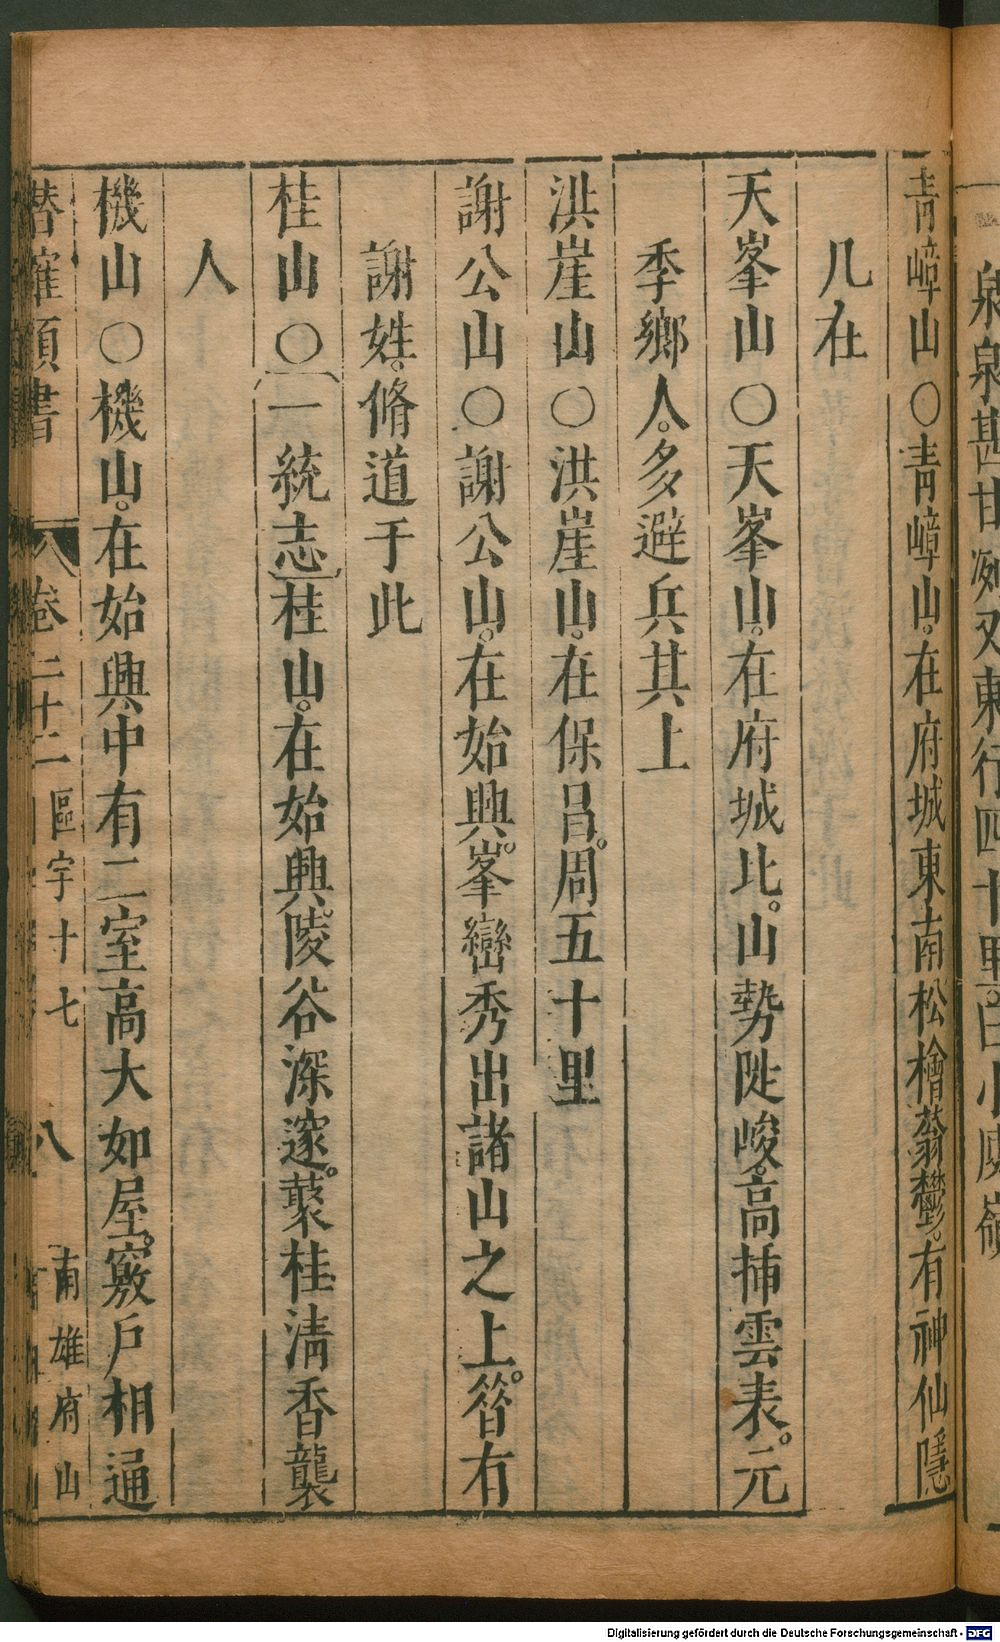 泉泉甚甘冽又東行四十里曰小庾嶺
青嶂山〇青嶂山。在府城東南松檜蓊鬱。有神仙隱
几在
天峯山〇天峯山。在府城北。山勢陡峻。高揷雲表。元
季鄉人。多避兵其上
洪崖山〇洪崖山。在保昌。周五十里
謝公山〇謝公山。在始興。峯巒秀出諸山之上。昝有
謝姓。脩道于此
桂山〇一統志桂山。在始興。陵谷深邃。蘩桂淸香襲
人
機山〇機山。在始興中有二室高大如屋。竅戶相通
潛確類書 卷二十二 區宇十七 八 南雄府山
Digitalisierung gefördert durch die Deutsche Forschungsgemeinschaft - DFG